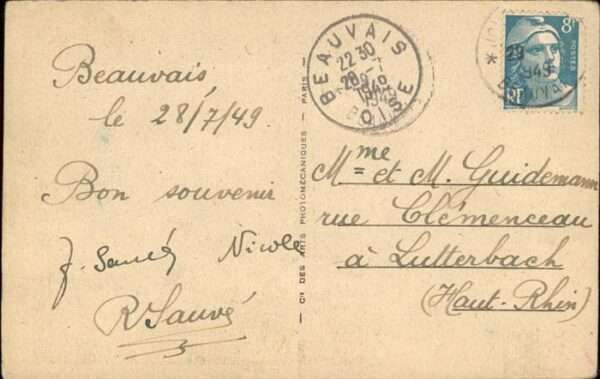 Beauvais
le 28/7/49.
Bon souvenir
J. Sauvé Nicole
R Sauvé
Cie DES ARTS PHOTOMÉCANIQUES - PARIS -
BEAUVAIS
22 30
OISE
8F
POSTES
RF
29
1949
Mme et M. Guidemann
rue Clémenceau
à Lutterbach
(Haut-Rhin)